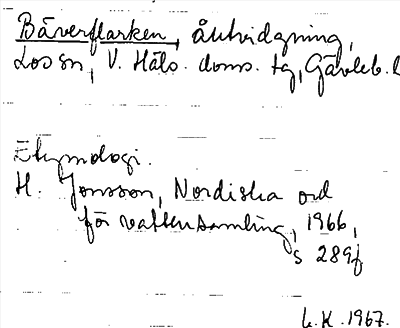 Bäverflarken, åutvidgning,
Los sn, V. Häls. doms. tg, Gävleb. l
Etymologi.
H. Jonsson, Nordiska ord
för vattensamling, 1966,
s 289f
L.K. 1967.